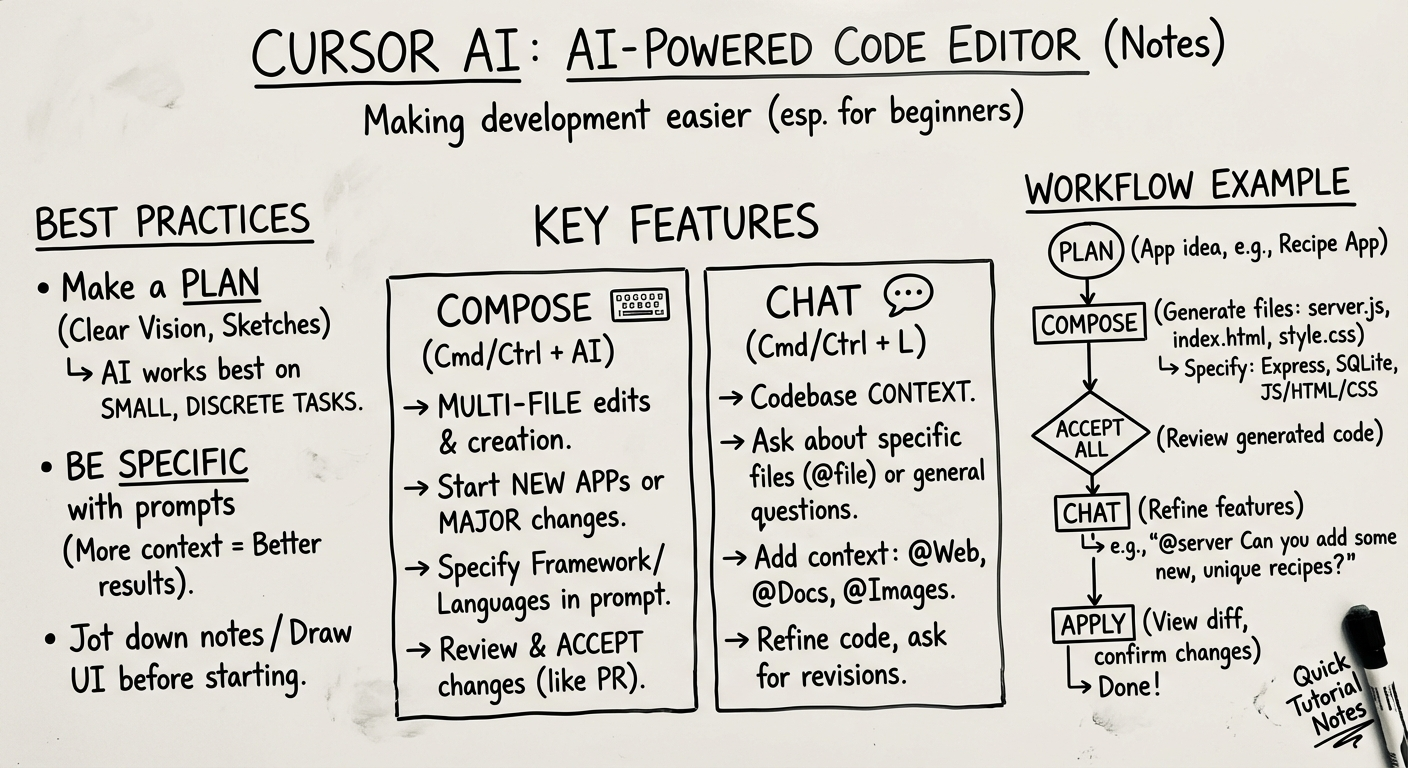 CURSOR AI: AI-POWERED CODE EDITOR (Notes)
Making development easier (esp. for beginners)
BEST PRACTICES
• Make a PLAN
(Clear Vision, Sketches)
↳ AI works best on
SMALL, DISCRETE TASKS.
• BE SPECIFIC
with prompts
(More context = Better
results).
• Jot down notes / Draw
UI before starting.
KEY FEATURES
COMPOSE
(Cmd/Ctrl + AI)
→ MULTI-FILE edits
& creation.
→ Start NEW APPs or
MAJOR changes.
→ Specify Framework/
Languages in prompt.
→ Review & ACCEPT
changes (like PR).
CHAT
(Cmd/Ctrl + L)
→ Codebase CONTEXT.
→ Ask about specific
files (@file) or general
questions.
→ Add context: @Web,
@Docs, @Images.
→ Refine code, ask
for revisions.
WORKFLOW EXAMPLE
PLAN (App idea, e.g., Recipe App)
COMPOSE (Generate files: server.js,
index.html, style.css)
↳ Specify: Express, SQLite,
JS/HTML/CSS
ACCEPT
ALL (Review generated code)
CHAT (Refine features)
↳ e.g., "@server Can you add some
new, unique recipes?"
APPLY (View diff,
confirm changes)
↳ Done!
Quick
Tutorial
Notes